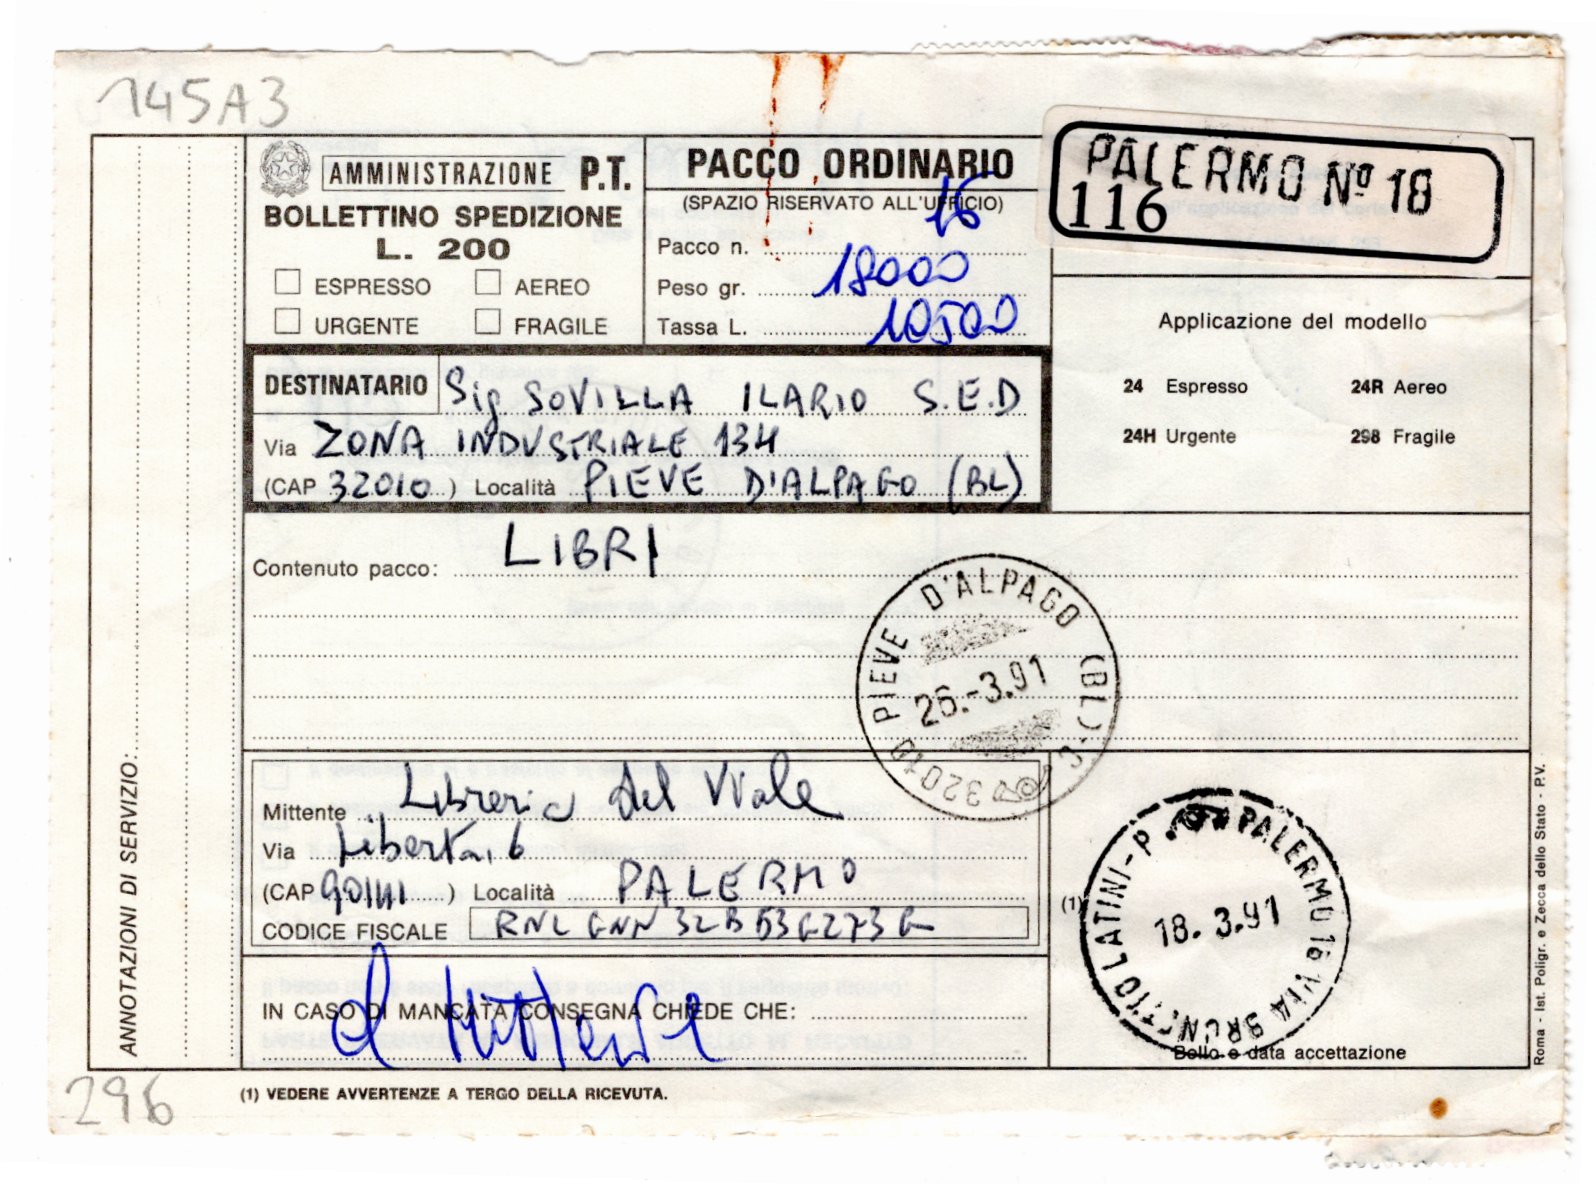 145A3
AMMINISTRAZIONE P.T.
BOLLETTINO SPEDIZIONE
L. 200
ESPRESSO AEREO
URGENTE FRAGILE
PACCO ORDINARIO
(SPAZIO RISERVATO ALL'UFFICIO)
Pacco n. 16
Peso gr. 18000
Tassa L. 10500
PALERMO Nº 18
116
Applicazione del modello
24 Espresso 24R Aereo
24H Urgente 298 Fragile
DESTINATARIO Sig. SOVILLA ILARIO S.E.D
Via ZONA INDUSTRIALE 134
(CAP 32010) Località PIEVE D'ALPAGO (BL)
Contenuto pacco: LIBRI
32010 PIEVE D'ALPAGO (BL)·C
26.-3.91
Mittente Libreria del Viale
Via Libertà, 6
(CAP 90141) Località PALERMO
CODICE FISCALE RNL GNN 32B53G273G
IN CASO DI MANCATA CONSEGNA CHIEDE CHE:
al Mittente
(1)
PALERMO 16 VIA BRUNETTO LATINI-P.
18. 3.91
Bollo e data accettazione
ANNOTAZIONI DI SERVIZIO:
Roma - Ist. Poligr. e Zecca dello Stato - P.V.
(1) VEDERE AVVERTENZE A TERGO DELLA RICEVUTA.
296